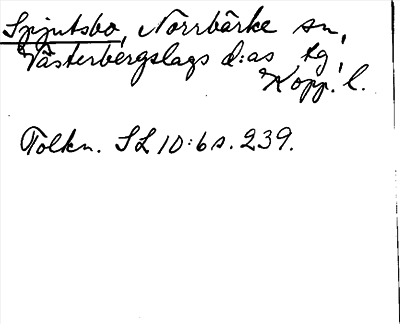 Spjutsbo, Norrbärke sn,
Västerbergslags d:as tg,
Kopp. l.
Tolkn. SL 10:6 s. 239.